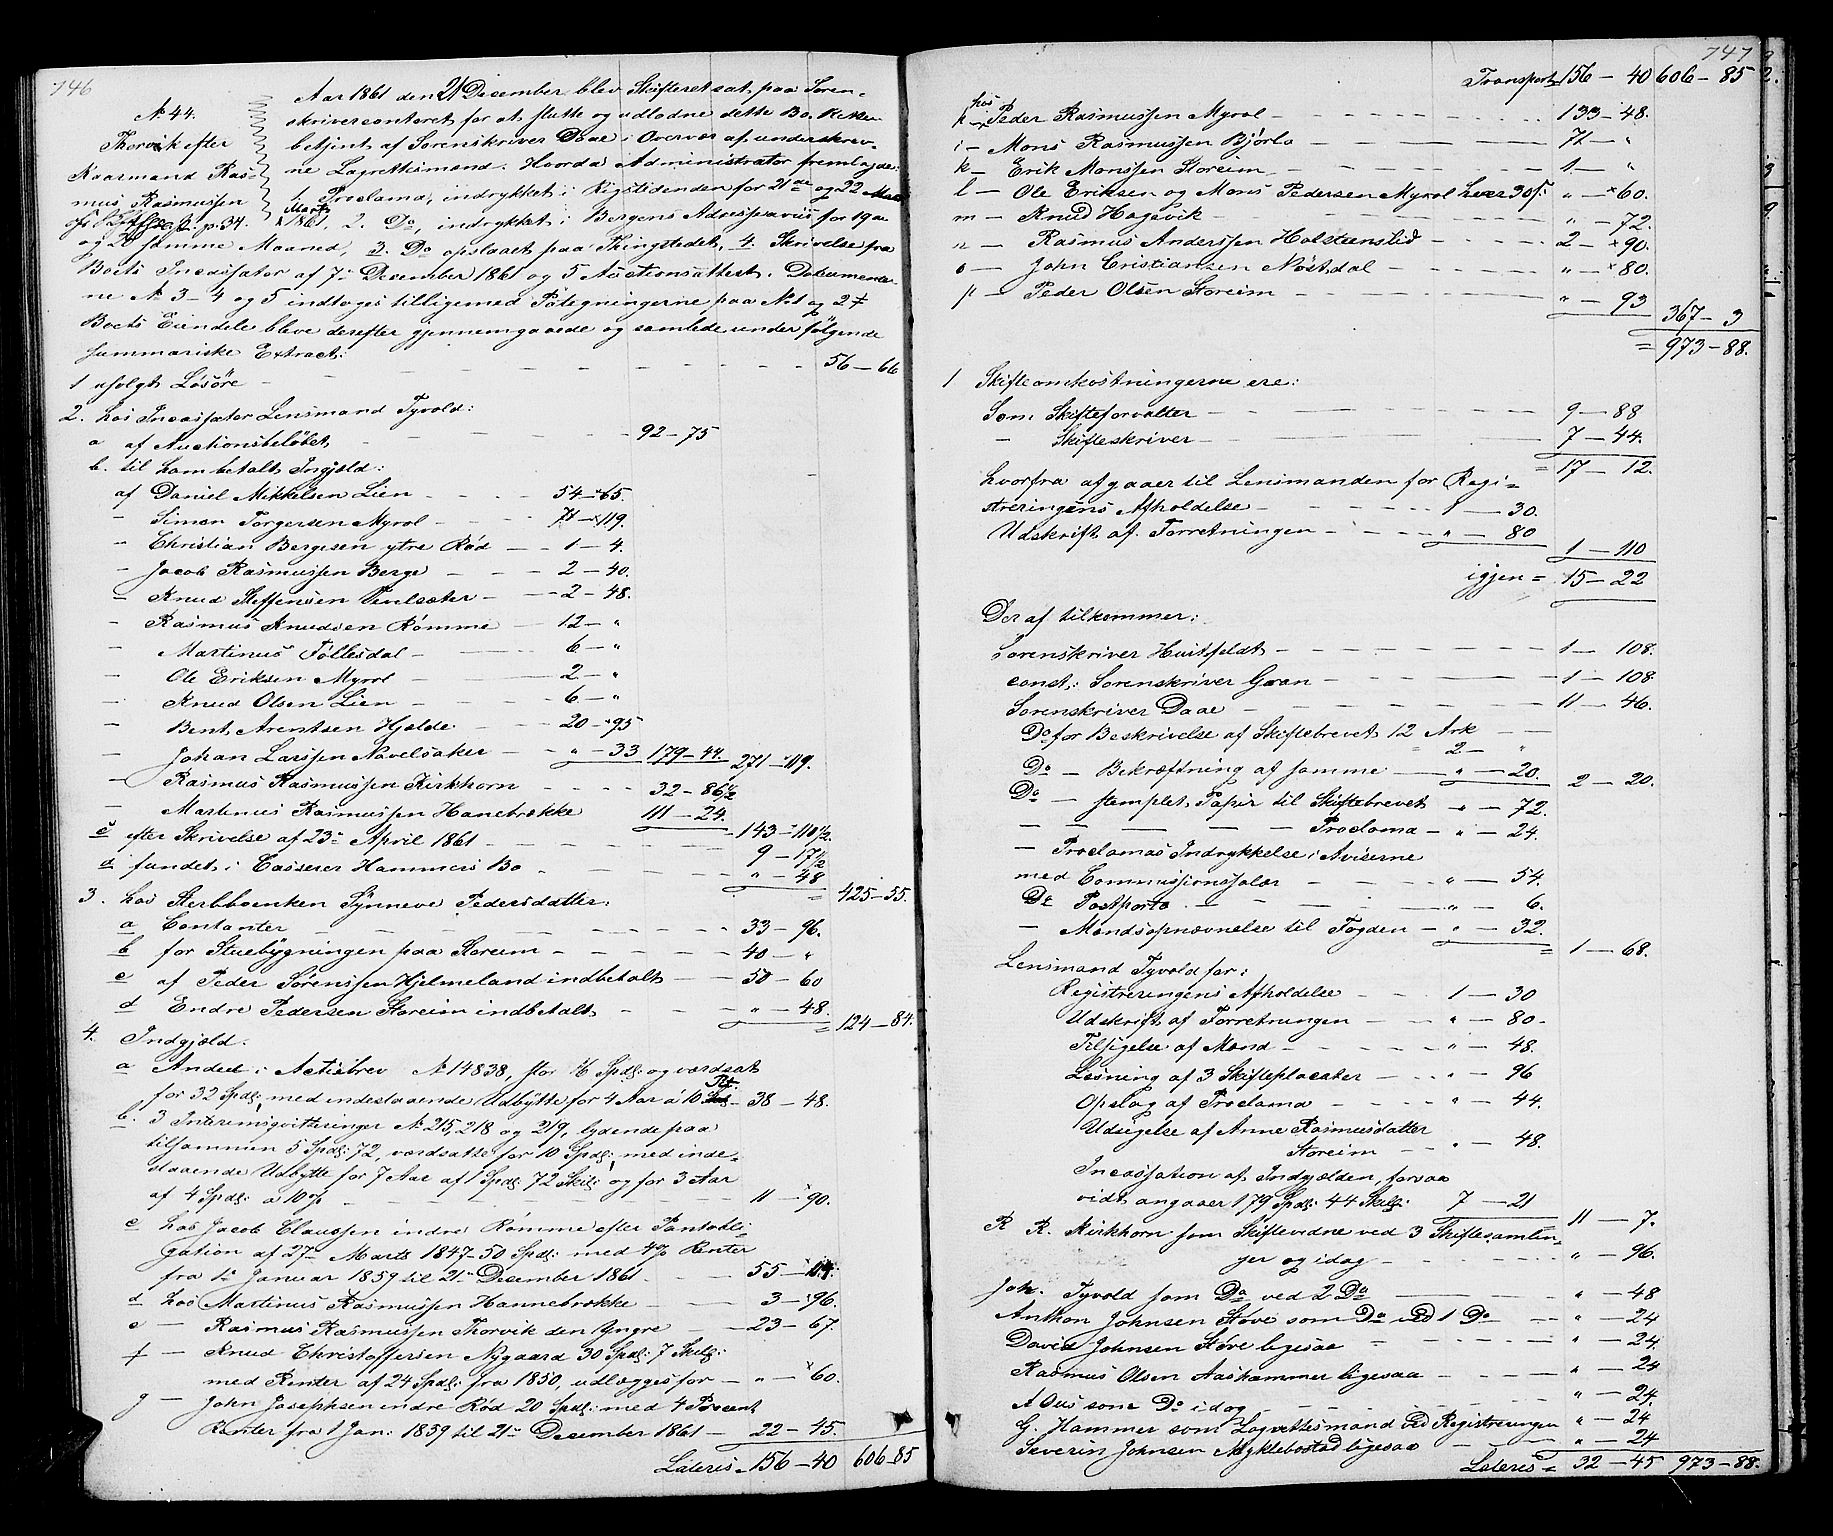 746
No 44.
Thorvik efter
Kaarmand Ras-
mus Rasmussen
p. 34.
Aar 1861 den 21 December blev Skifteret sat paa Soren-
skrivercontoret for at slutte og udlodne dette Bo. Retten
betjent af Sorenskriver Daae i Overvær af underskrev-
ne Lagrettesmænd. Hvorda Administrator fremlagde:
1. Proclama, indrykket i Rigstidenden for 21de og 22 Marts
1861, 2. Do, indrykket i Bergens Adresseavis for 19de
og 20 samme Maaned, 3. Do opslaaet paa Thingstedet, 4. Skrivelse fra
Boets Incassator af 7de December 1861 og 5 Auctionsattest. Documenter-
ne No 3-4 og 5 indtages tilligemed Paategningerne paa No 1 og 2
Boets Eiendele bleve derefter gjennemgaaede og samlede under følgende
summariske Extract:
1 usolgt Løsøre - 56 - 66
2. hos Incassator Lensmand Tyvold:
a af Auctionsbeløbet - 92 - 75
b. til ham betalt Ingjæld:
af Daniel Mikkelsen Lien - 54 - 65.
- Simon Torgersen Myrol - 71 - 119.
- Christian Bergesen ytre Rød - 1 - 4.
- Jacob Rasmussen Berge - 2 - 40.
- Knud Steffensen - 2 - 48.
- Rasmus Knudsen Rømme - 12 - "
- Martinus Føllesdal - 6 - "
- Ole Eriksen Myrol - 2 - "
- Knud Olsen Lien - 6 - "
- Bent Arentsen Hjelde - 20 - 95
- Johan Larssen Navelsaker - " - 33 179 - 44. 271 - 119.
- Rasmus Rasmussen Kirkhorn - 32 - 86 1/2
- Martinus Rasmussen Hanebrække 111 - 24. 143 - 110 1/2.
c efter Skrivelse af 23de April 1861 - 9 - 17 1/2
d fundet i Casserer Hammers Bo - " - 48 = 425 - 55.
3. hos Sterbboenken Synneve Pedersdatter:
a Contanter - 33 - 96.
b for Stuebygningen paa Storeim - 40 - "
c af Peder Sørenssen Hjelmeland indbetalt - 50 - 60
d Endre Pedersen Storeim indbetalt - " - 48. = 124 - 84.
4. Indgjæld:
a Andel i Actiebrev No 14838, stor 16 Spdl: og værdsat
for 32 Spdl: med indestaaende Udbytte for 4 Aar á 10 Rt: 38 - 48.
b. 3 Interimsqvitteringer No 215, 218 og 219, lydende paa
tilsammen 5 Spdl: 72, værdsatte for 10 Spdl: med inde-
staaende Udbytte for 7 Aar af 1 Spdl: 72 Skil: og for 3 Aar
af 4 Spdl: á 10 % - 11 - 90.
c hos Jacob Claussen indre Rømme efter Pantobli-
gation af 27de Marts 1847 - 50 Spdl: med 4 % Renter
fra 1de Januar 1859 til 21de December 1861 - 55 - 114.
d hos Martinus Rasmussen Hannebrække - 3 - 96.
e - Rasmus Rasmussen Thorvik den Yngre - 23 - 67.
f - Knud Christoffersen Nygaard 30 Spdl: 7 Skil:
med Renter af 24 Spdl: fra 1850, udlægges for - " - 60.
g - John Josephsen indre Rød 20 Spdl: med 4 Procent
Renter fra 1 Jan: 1859 til 21de December 1861 - 22 - 45.
Lateris - 156 - 40 606 - 85
747
Transport 156 - 40 606 - 85
h hos Peder Rasmussen Myrol - 133 - 48.
i - Mons Rasmussen Bjørlo - 71 - "
k - Erik Monssen Storeim - 1 - "
l - Ole Eriksen og Mons Pedersen Myrol hver 30 s: " - 60.
m - Knud Hagevik - " - 72.
n - Rasmus Anderssen Holsteenslid - 2 - 90.
o - John Cristiansen Nøstdal - " - 80.
p - Peder Olsen Storeim - " - 93 367 - 3
= 973 - 88.
1 Skifteomkostningerne ere:
Som Skifteforvalter - 9 - 88
- Skifteskriver - 7 - 44.
= 17 - 12.
hvorfra afgaaer til Lensmanden for Regi-
streringens Afholdelse - 1 - 30.
Udskrift af Forretningen - " - 80 1 - 110
igjen = 15 - 22
Der af tilkommer:
Sorenskriver Huitfeldt - 1 - 108.
const: Sorenskriver Gran - 1 - 108
Sorenskriver Daae - 11 - 46.
Do for Beskrivelse af Skiftebrevet 12 Ark - 2 - "
Do - Bekræftning af samme - " - 20. 2 - 20.
Do - stemplet Papir til Skiftebrevet " - 72.
- Proclama - " - 24.
- Proclamas Indrykkelse i Aviserne
med Commissionssalær - " - 54.
Do Postporto - " - 6.
- Mandsopnævnelse til Fogden - " - 32. = 1 - 68.
Lensmand Tyvold for:
Registreringens Afholdelse - 1 - 30
Udskrift af Forretningen - " - 80 -
Tilsigelse af Mænd - " - 48.
Læsning af 3 Skifteplacater - " - 96
Opslag af Proclama - " - 44.
Udsigelse af Anne Rasmusdatter
Storeim - " - 48.
Incassation af Indgjælden, forsaa-
vidt angaaer 179 Spdl: 44 Skil: 7 - 21 11 - 7.
R R. Kirkhorn som Skiftevidne ved 3 Skiftesamlin-
ger og idag - " - 96.
Joh. Tyvold som Do ved 2 Do " - 48
Anthon Johnsen Støve som Do ved 1 Do - " - 24
David Johnsen Støve ligesaa - " - 24.
Rasmus Olsen Aashammer ligesaa - " - 24
A Ous som Do idag - " - 24.
G. Hammer som Lagrettesmand ved Registreringen " - 24
Severin Johnsen Myklebostad ligesaa - " - 24
Lateris = 32 - 45 973 - 88.